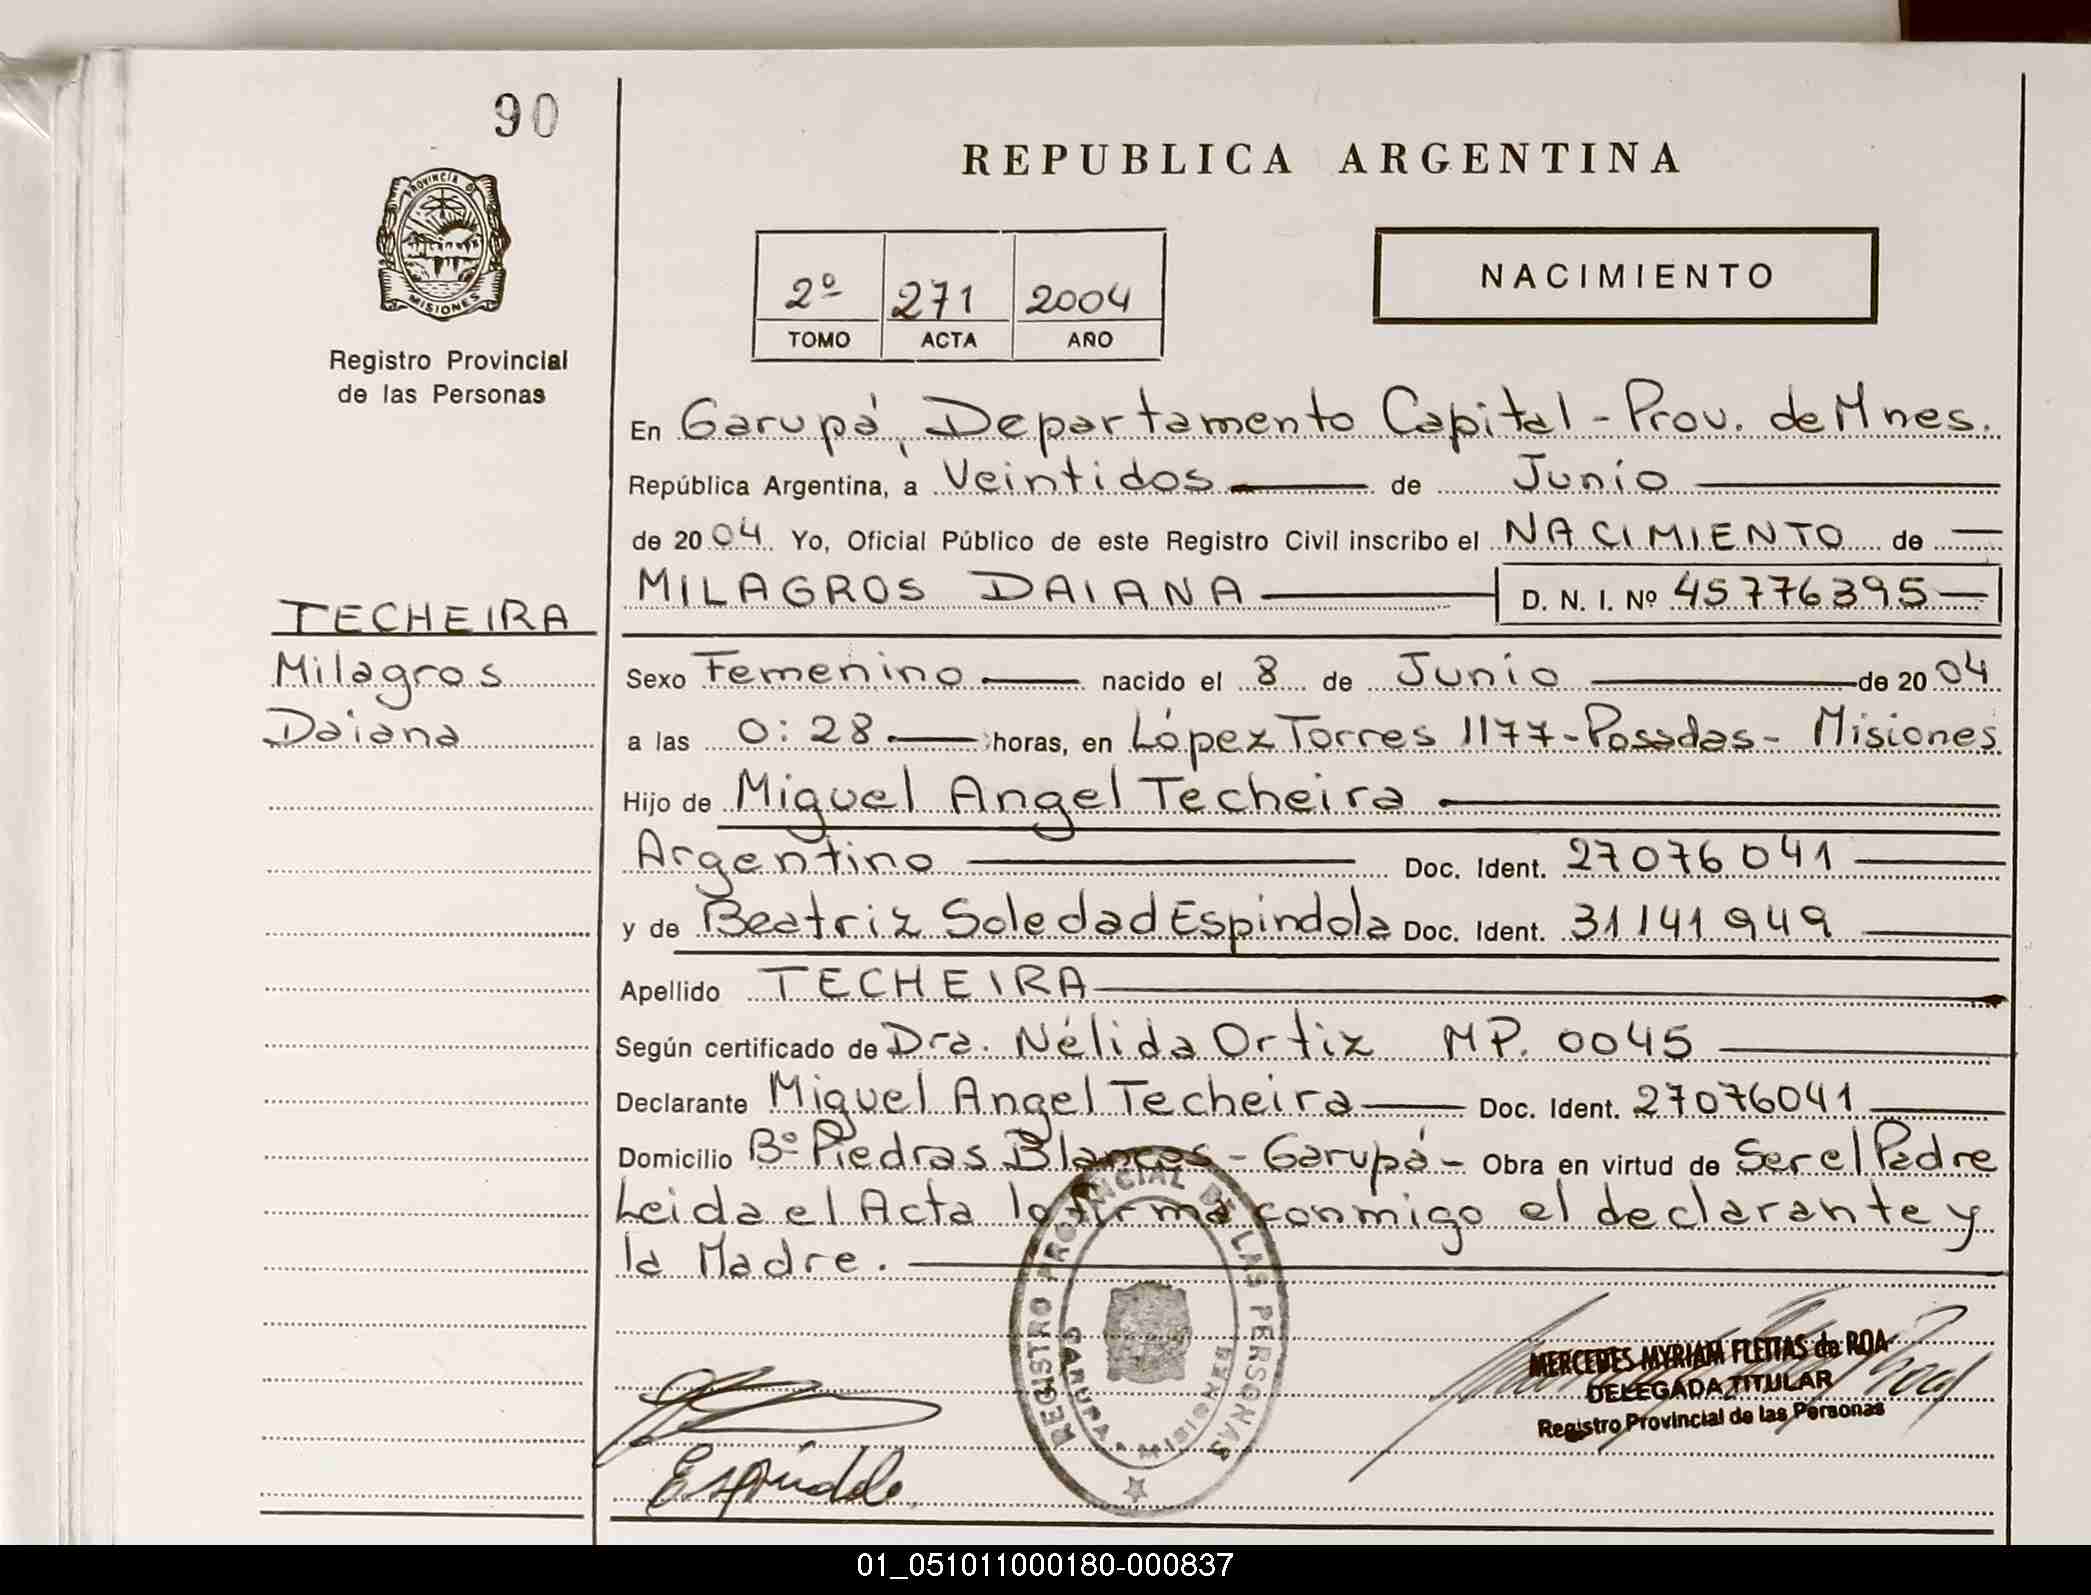 90
PROVINCIA DE
MISIONES
Registro Provincial
de las Personas
REPUBLICA ARGENTINA
2º 271 2004
TOMO ACTA AÑO
NACIMIENTO
En Garupá, Departamento Capital - Prov. de Mnes.
República Argentina, a Veintidos de Junio
de 2004. Yo, Oficial Público de este Registro Civil inscribo el NACIMIENTO de
MILAGROS DAIANA D. N. I. Nº 45776395
TECHEIRA
Milagros
Daiana
Sexo Femenino nacido el 8 de Junio de 2004
a las 0:28 horas, en López Torres 1177 - Posadas - Misiones
Hijo de Miguel Angel Techeira
Argentino Doc. Ident. 27076041
y de Beatriz Soledad Espindola Doc. Ident. 31141949
Apellido TECHEIRA
Según certificado de Dra. Nélida Ortiz MP. 0045
Declarante Miguel Angel Techeira Doc. Ident. 27076041
Domicilio Bº Piedras Blancas - Garupá - Obra en virtud de Ser el Padre
Leida el Acta la firma conmigo el declarante y
la Madre.
REGISTRO PROVINCIAL DE LAS PERSONAS
GARUPA MISIONES
MERCEDES MYRIAM FLEITAS de ROA
DELEGADA TITULAR
Registro Provincial de las Personas
Espindola
01_051011000180-000837